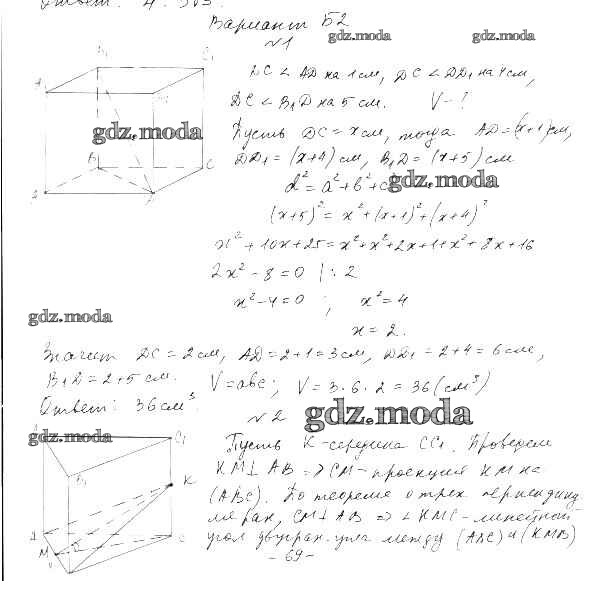 Ответ: 4.
Вариант Б2
№1
DC < AD на 1 см, DC < DD₁ на 4 см,
DC < B₁D на 5 см. V - ?
Пусть DC = x см, тогда AD = (x+1) см,
DD₁ = (x+4) см, B₁D = (x+5) см
d² = a² + b² + c²
(x+5)² = x² + (x+1)² + (x+4)²
x² + 10x + 25 = x² + x² + 2x + 1 + x² + 8x + 16
2x² - 8 = 0 | : 2
x² - 4 = 0 ; x² = 4
x = 2.
Значит DC = 2 см, AD = 2+1 = 3 см, DD₁ = 2+4 = 6 см,
B₁D = 2+5 см. V = abc; V = 3·6·2 = 36 (см³)
Ответ: 36 см³.
№2
Пусть K - середина CC₁. Проведем
KM ⊥ AB => CM - проекция KM на
(ABC). По теореме о трех перпендику
лярах, CM ⊥ AB => ∠KMC - линейный
угол двугран. угла между (ABC) и (KMB)
- 69 -
A₁
B₁
C₁
D₁
A
B
C
D
C₁
B₁
K
A
M
C
gdz.moda
gdz.moda
gdz.moda
gdz.moda
gdz.moda
gdz.moda
gdz.moda